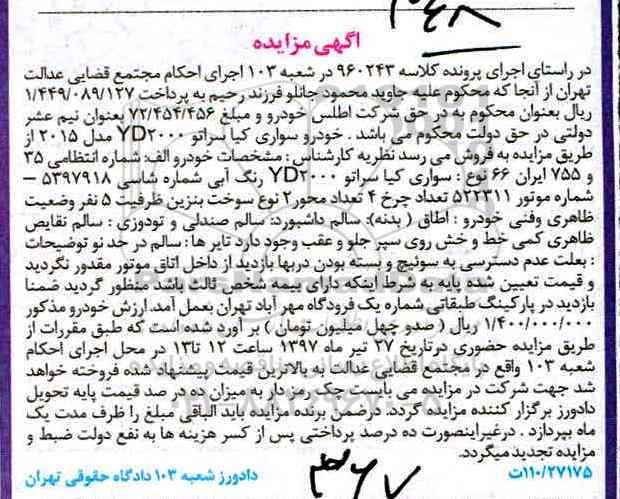 ۳۶۸
آگهی مزایده
در راستای اجرای پرونده کلاسه ۹۶۰۲۴۳ در شعبه ۱۰۳ اجرای احکام مجتمع قضایی عدالت
تهران از آنجا که محکوم علیه جاوید محمود جانلو فرزند رحیم به پرداخت ۱/۴۴۹/۰۸۹/۱۲۷
ریال بعنوان محکوم به در حق شرکت اطلس خودرو و مبلغ ۷۲/۴۵۴/۴۵۶ بعنوان نیم عشر
دولتی در حق دولت محکوم می باشد . خودرو سواری کیا سراتو YD۲۰۰۰ مدل ۲۰۱۵ از
طریق مزایده به فروش می رسد نظریه کارشناس : مشخصات خودرو الف: شماره انتظامی ۳۵
و ۷۵۵ ایران ۶۶ نوع : سواری کیا سراتو YD۲۰۰۰ رنگ آبی شماره شاسی ۵۳۹۷۹۱۸ –
شماره موتور ۵۲۲۳۱۱ تعداد چرخ ۴ تعداد محور ۲ نوع سوخت بنزین ظرفیت ۵ نفر وضعیت
ظاهری وفنی خودرو : اطاق ( بدنه): سالم داشبورد: سالم صندلی و تودوزی : سالم نقایص
ظاهری کمی خط و خش روی سپر جلو و عقب وجود دارد تایر ها : سالم در حد نو توضیحات
: بعلت عدم دسترسی به سوئیچ و بسته بودن دربها بازدید از داخل اتاق موتور مقدور نگردید
و قیمت تعیین شده پایه به شرط اینکه دارای بیمه شخص ثالث باشد منظور گردید ضمنا
بازدید در پارکینگ طبقاتی شماره یک فرودگاه مهر آباد تهران بعمل آمد. ارزش خودرو مذکور
۱/۴۰۰/۰۰۰/۰۰۰ ریال ( صدو چهل میلیون تومان ) بر آورد شده است که طبق مقررات از
طریق مزایده حضوری درتاریخ ۲۷ تیر ماه ۱۳۹۷ ساعت ۱۲ تا ۱۳ در محل اجرای احکام
شعبه ۱۰۳ واقع در مجتمع قضایی عدالت به بالاترین قیمت پیشنهاد شده فروخته خواهد
شد جهت شرکت در مزایده می بایست چک رمز دار به میزان ده در صد قیمت پایه تحویل
دادورز برگزار کننده مزایده گردد. درضمن برنده مزایده باید الباقی مبلغ را ظرف مدت یک
ماه بپردازد . درغیراینصورت ده درصد پرداختی پس از کسر هزینه ها به نفع دولت ضبط و
مزایده تجدید میگردد.
۱۱۰/۲۷۱۷۵ت دادورز شعبه ۱۰۳ دادگاه حقوقی تهران
۳۶۷